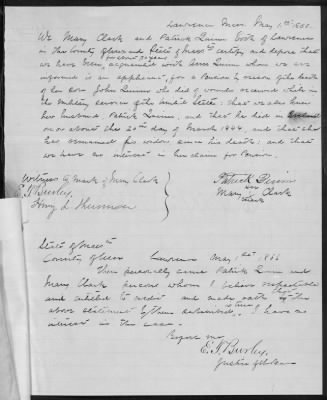 Lawrence Mass May 1st 1866.
We Mary Clark and Patrick Quinn both of Lawrence
in the County of Essex and State of Mass certify and depose that
we have been acquainted with Ann Quinn whom we are
informed is an applicant for a Pension by reason of the death
of her son John Quinn who died of wounds received while in
the military service of the United States: that we also knew
her husband, Patrick Quinn, and that he died in
on or about the 20th day of March 1844. and that she
has remained his widow since his death: and that
we have no interest in her claim for Pension.
Witness to mark of Mary Clark
E. J. Burley
Patrick Quinn
her
Mary X Clark
mark
State of Mass
County of Essex Lawrence May 1st 1866
Then personally came Patrick Quinn and
Mary Clark persons whom I believe respectable
and entitled to credit and made oath that the
above statement by them subscribed is true. I have no
interest in the case.
Before me
E. J. Burley,
Justice of the Peace